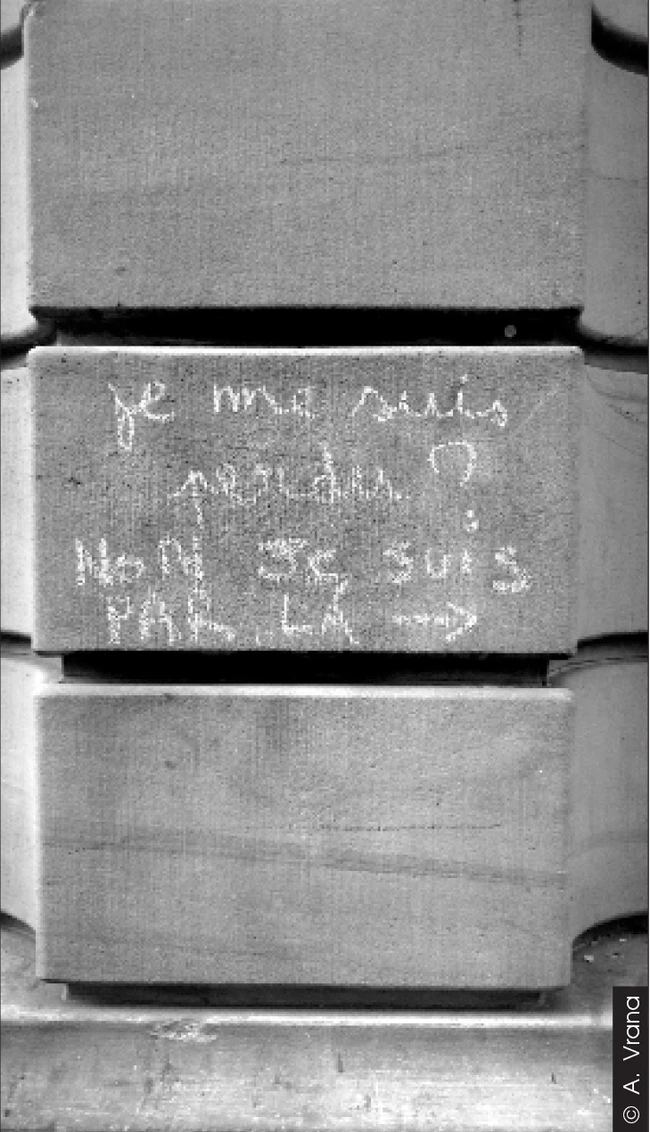 je me suis
perdu ?
NON, JE SUIS
PAR LÀ →
© A. Vrana